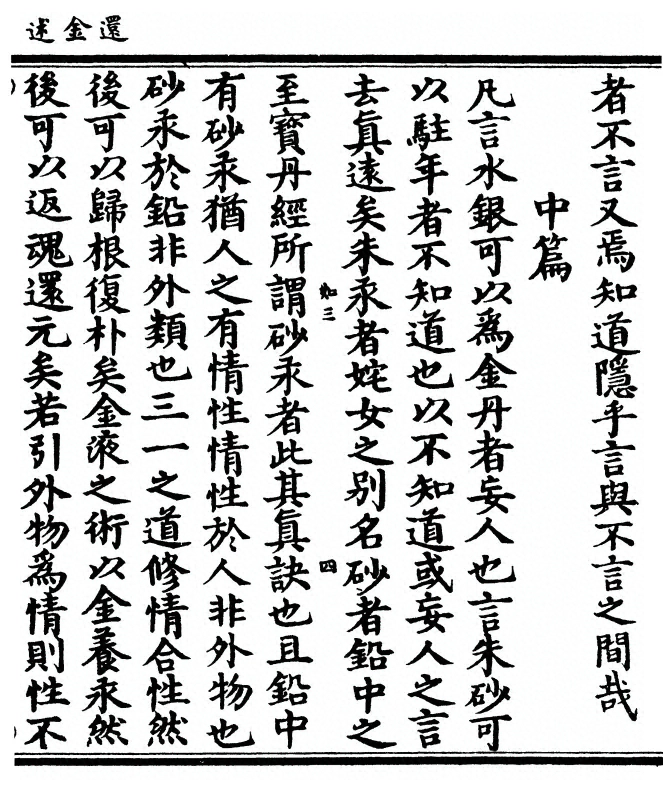 還金述
者不言又焉知道隱乎言與不言之間哉
中篇
凡言水銀可以爲金丹者妄人也言朱砂可
以駐年者不知道也以不知道或妄人之言
去眞遠矣朱汞者姹女之别名砂者鉛中之
如三
四
至寶丹經所謂砂汞者此其眞訣也且鉛中
有砂汞猶人之有情性情性於人非外物也
砂汞於鉛非外類也三一之道修情合性然
後可以歸根復朴矣金液之術以金養汞然
後可以返魂還元矣若引外物爲情則性不